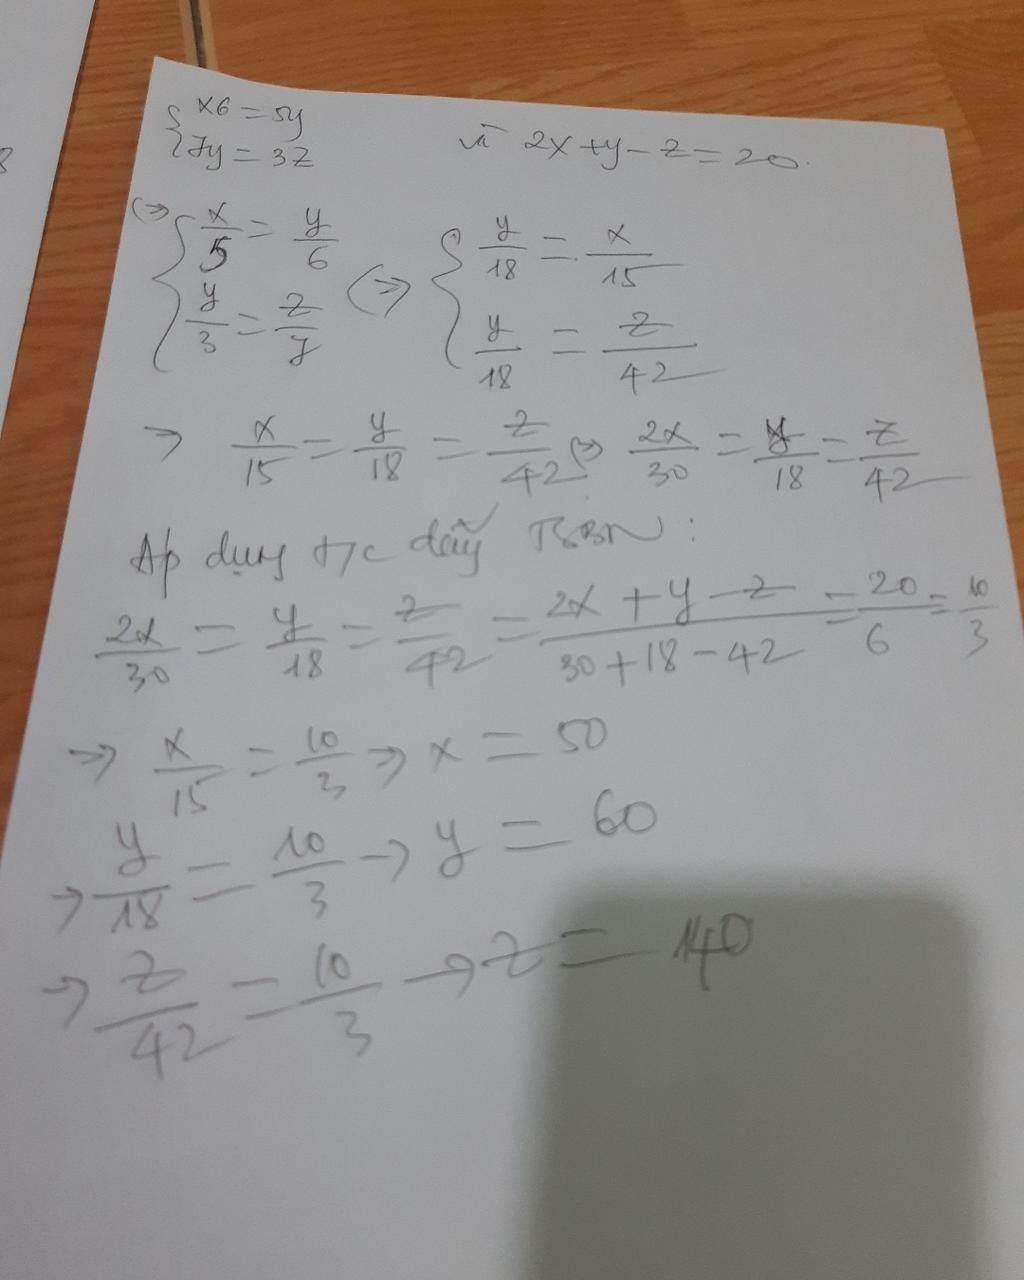 8
{x6 = 5y
{7y = 3z và 2x + y - z = 20.
(=> { x/5 = y/6 (=> { y/18 = x/15
{ y/3 = z/7 { y/18 = z/42
=> x/15 = y/18 = z/42 (=> 2x/30 = y/18 = z/42
Áp dụng t/c dãy TSBN :
2x/30 = y/18 = z/42 = (2x + y - z)/(30 + 18 - 42) = 20/6 = 10/3
=> x/15 = 10/3 => x = 50
=> y/18 = 10/3 -> y = 60
=> z/42 = 10/3 -> z = 140